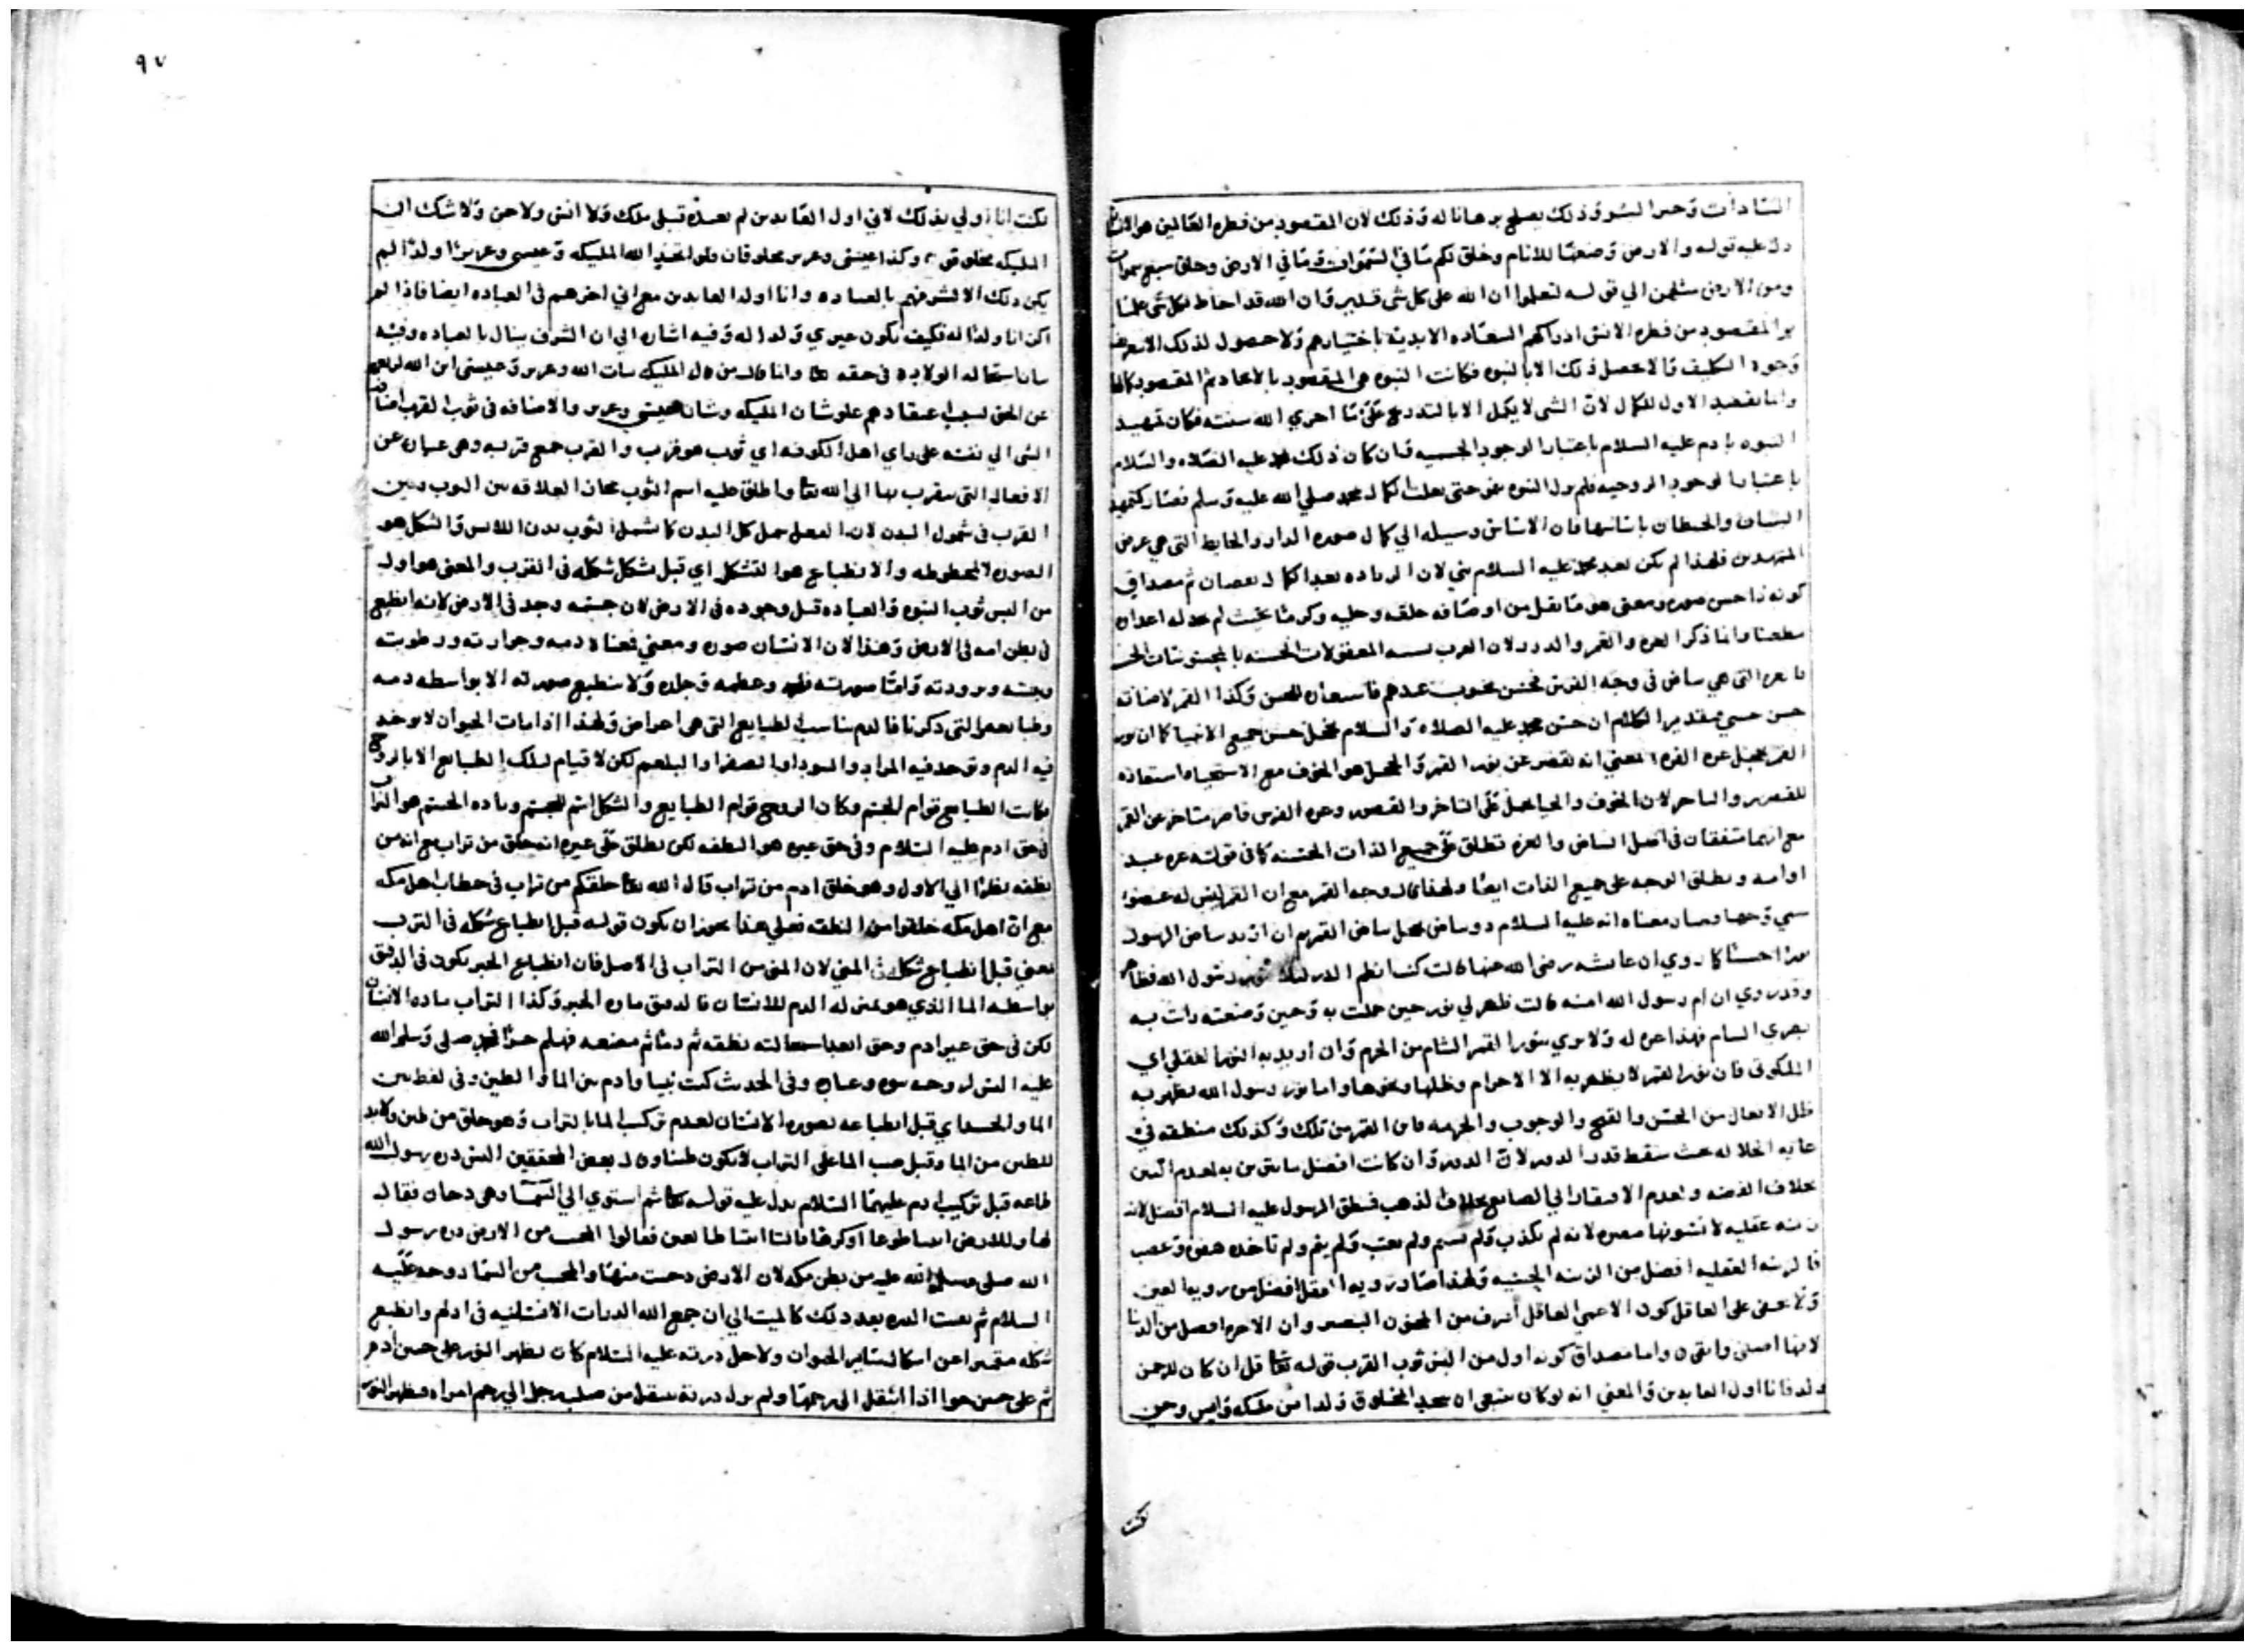 السادات وخير البشر وذلك يصلح برهانا له وذلك لان المقصود من فطره العالمين هو الانسان
دل عليه قوله والارض وضعها للانام وخلق لكم ما في السموات وما في الارض وخلق سبع سموات
ومن الارض مثلهن الي قوله لتعلموا ان الله على كل شى قدير وان الله قد احاط بكل شى علما
المقصود من فطره الانس ادراكهم السعاده الابدية باختيارهم ولا حصول لذلك الا
وجود التكليف ولا يحصل ذلك الا بالنبوه فكانت النبوه هى المقصود بالايجاد ثم المقصود كمالها
وانما يقصد الاول للكمال لان الشى لا يكمل الا بالتدريج على ما اجري الله سنته فكان تمهيد
النبوه بادم عليه السلام باعتبار الوجود الجسميه وان كان ذلك محمد عليه الصلاه والسلام
باعتبار الوجود الروحيه فلم يزل النبوه حتى بلغت الكمال محمد صلي الله عليه وسلم فصار كتمهيد
البنيان والحيطان باساسها فان الاساس وسيله الي كمال صوره الدار والحايط التى هي غرض
المتمهدين فلهذا لم يكن بعد محمد عليه السلام نبي لان الزياده بعد الكمال نقصان ثم مصداق
كونه ذا حسن صوره ومعنى هو ما نقل من اوصافه خلقه وحليه وكرمه بحيث لم
وانما ذكر الغره والقمر والدرر لان العرب المعقولات الحسنه بالمحسوسات
التى هي بياض في وجه الفرس محسن محبوب عندهم وكذا القمر لاضاته
حسن حسي بتقدير الكلام ان حسن محمد عليه الصلاه والسلام يخجل حسن جميع الاشيا كما ان
القمر يخجل غره الفرس المعني انه تقصر عن نور القمر والخجل هو الخوف مع الاستحياء استعاره
للقصور والتاخر لان الخوف والحيا يحمل على التاخر والقصور وغره الفرس قاصر متاخر عن القمر
مع انهما متفقان في اصل البياض والغره تطلق على جميع الذات الحسنه كما في قوله غره عبد
او امه ويطلق الوجه على جميع الذات ايضا ولهذا قال وجه القمر مع ان القمر ليس له عضو
سمي وجها وصار معناه انه عليه السلام ذو بياض يخجل بياض القمر ان اريد بياض الرسول
نورا حسنا كما روي ان عايشه رضى الله عنها قالت كنت انظم الدر ليلا بنور رسول الله
وقد روي ان ام رسول الله امنه قالت ظهر لي نور حين حملت به وحين وضعته رات به
بصرى الشام فهذا غره له ولا يري بنور القمر الشام من الحرم وان اريد به النور العقلي اي
الملكوتى فان نور القمر لا يظهر به الا الاجرام وظلها ونحوها واما نور رسول الله يظهر به
ظلل الافعال من الحسن والقبح والوجوب والحرمه فاين القمر من تلك وكذلك منطقه في
غايه الجلاله بحيث سقط قدر الدرر لان الدرر وان كانت افضل
بخلاف الفضه ولعدم الافتقار الي الصانع بخلاف الذهب فنطق الرسول عليه السلام افضل لان
زينه عقليه لا تشوبها مضره لانه لم يكذب ولم يشتم ولم يعتب ولم ولم تاخذه
فالزينه العقليه افضل من الزينه الحسيه ولهذا صار رويه العقل افضل من رويه العين
ولا يخفى على العاقل كون الاعمي العاقل اشرف من المجنون البصير وان الاخره افضل من الدنيا
لانها اصلى وابقى واما مصداق كونه اول من البس ثوب القرب قوله تعالى قل ان كان للرحمن
ولد فانا اول العابدين والمعني انه لو كان ينبغى ان يتخذ المخلوق ولدا من ملكه وانس وجن
لكنت
٩٧
لكنت انا اولي بذلك لاني اول العابدين لم يعبده قبلى ملك ولا انس ولا جن ولا شك ان
المليكه مخلوقون وكذا عيسى وعزير مخلوقان ولو اتخذ الله المليكه وعيسى وعزيرا ولدا لم
يكن ذلك الا لشرفهم بالعباده وانا اول العابدين مع اني اخرهم فى العباده ايضا فاذا لم
اكن انا ولدا له فكيف يكون غيري ولدا له وفيه اشاره الي ان الشرف ينال بالعباده وفيه
بيان استحاله الولاده فى حقه تعالى وانما قال من قال المليكه بنات الله وعزير وعيسى ابن الله
عن الحق لسبب اعتقادهم علو شان المليكه وشان عيسى وعزير والاضافه فى ثوب القرب اضافة
الشى الي نفسه على راي اهل الكوفه اي ثوب هو قرب والقرب جمع قربه وهى عباره عن
الافعال التى يتقرب بها الي الله تعالى واطلق عليه اسم الثوب مجازا لعلاقه بين الثوب وبين
القرب فى شمول البدن لان الفعل يحمل كل البدن كما شمل الثوب بدن اللابس والشكل هو
الصوره المخطوطه والانطباع هو التشكل اي قبل تشكل شكله فى القرب والمعنى هو اول
من البس ثوب النبوه والعباده قبل وجوده فى الارض لان جسمه وجد فى الارض لانه انطبع
فى بطن امه فى الارض وهذا لان الانسان صوره ومعني فمعناه دمه وحرارته ورطوبته
ويبسه وبرودته واما صورته فلحمه وعظمه وجلده ولا ينطبع صورته الا بواسطه دمه
وطبايعه التى ذكرنا فالدم يناسب الطبايع التى هى اعراض ولهذا اذا مات الحيوان لا يوجد
فيه الدم ويوجد فيه المرار والسودا والصفرا والبلغم لكن لا قيام لتلك الطبايع الا بالروح
فكانت الطبايع قوام الجسم وكان الروح قوام الطبايع والشكل اسم للجسم وماده الجسم هو التراب
فى حق ادم عليه السلام وفى حق غيره هو النطفه لكن يطلق على غيره انه خلق من تراب مع انه من
نطفه نظرا الي الاول وهو خلق ادم من تراب قال الله تعالى خلقكم من تراب فى خطاب اهل مكه
مع ان اهل مكه خلقوا من النطفه فعلي هذا يجوز ان يكون قوله قبل انطباع شكله فى الترب
يعني قبل انطباع شكله فى المني لان المنى من التراب فى الاصل فان انطباع الحبر يكون فى الدقيق
بواسطه الما الذي هو بمنزله الدم للانسان فالدقيق ماده الخبز وكذا التراب ماده الانسان
لكن فى حق غير ادم وحق العباد استحالته نطفه ثم دما ثم مضغه فهلم جرا محمد صلى وسلم الله
عليه البس روحه نبوه وعباده وفى الحديث كنت نبيا وادم بين الما والطين وفى لفظ بين
الما والجسد اي قبل انطباعه بصوره الانسان لعدم تركيب الما بالتراب وهو خلق من طين ولابد
للطين من الما وقبل صب الما على التراب لا يكون طينا وقال بعض المحققين البس ذره رسول الله
طاعه قبل تركيب ادم عليهما السلام يدل عليه قوله تعالى ثم استوي الي السما وهى دخان فقال
لها وللارض ائتيا طوعا او كرها قالتا اتينا طايعين فقالوا المجيب من الارض ذره رسول
الله صلى وسلم الله عليه من بطن مكه لان الارض دحيت منها والمجيب من السما روحه عليه
السلام ثم بعثت الذره بعد ذلك كالميت الي ان جمع الله الذرات الانسانيه فى ادم وانطبع
شكله متميزا عن اشكال ساير الحيوان ولاجل ذرته عليه السلام كان يظهر النور على جبين ادم
ثم على جبين حوا اذا انتقل الى رحمها ولم يزل ذرته ينتقل من صلب رجل الي رحم امراه ويظهر النور